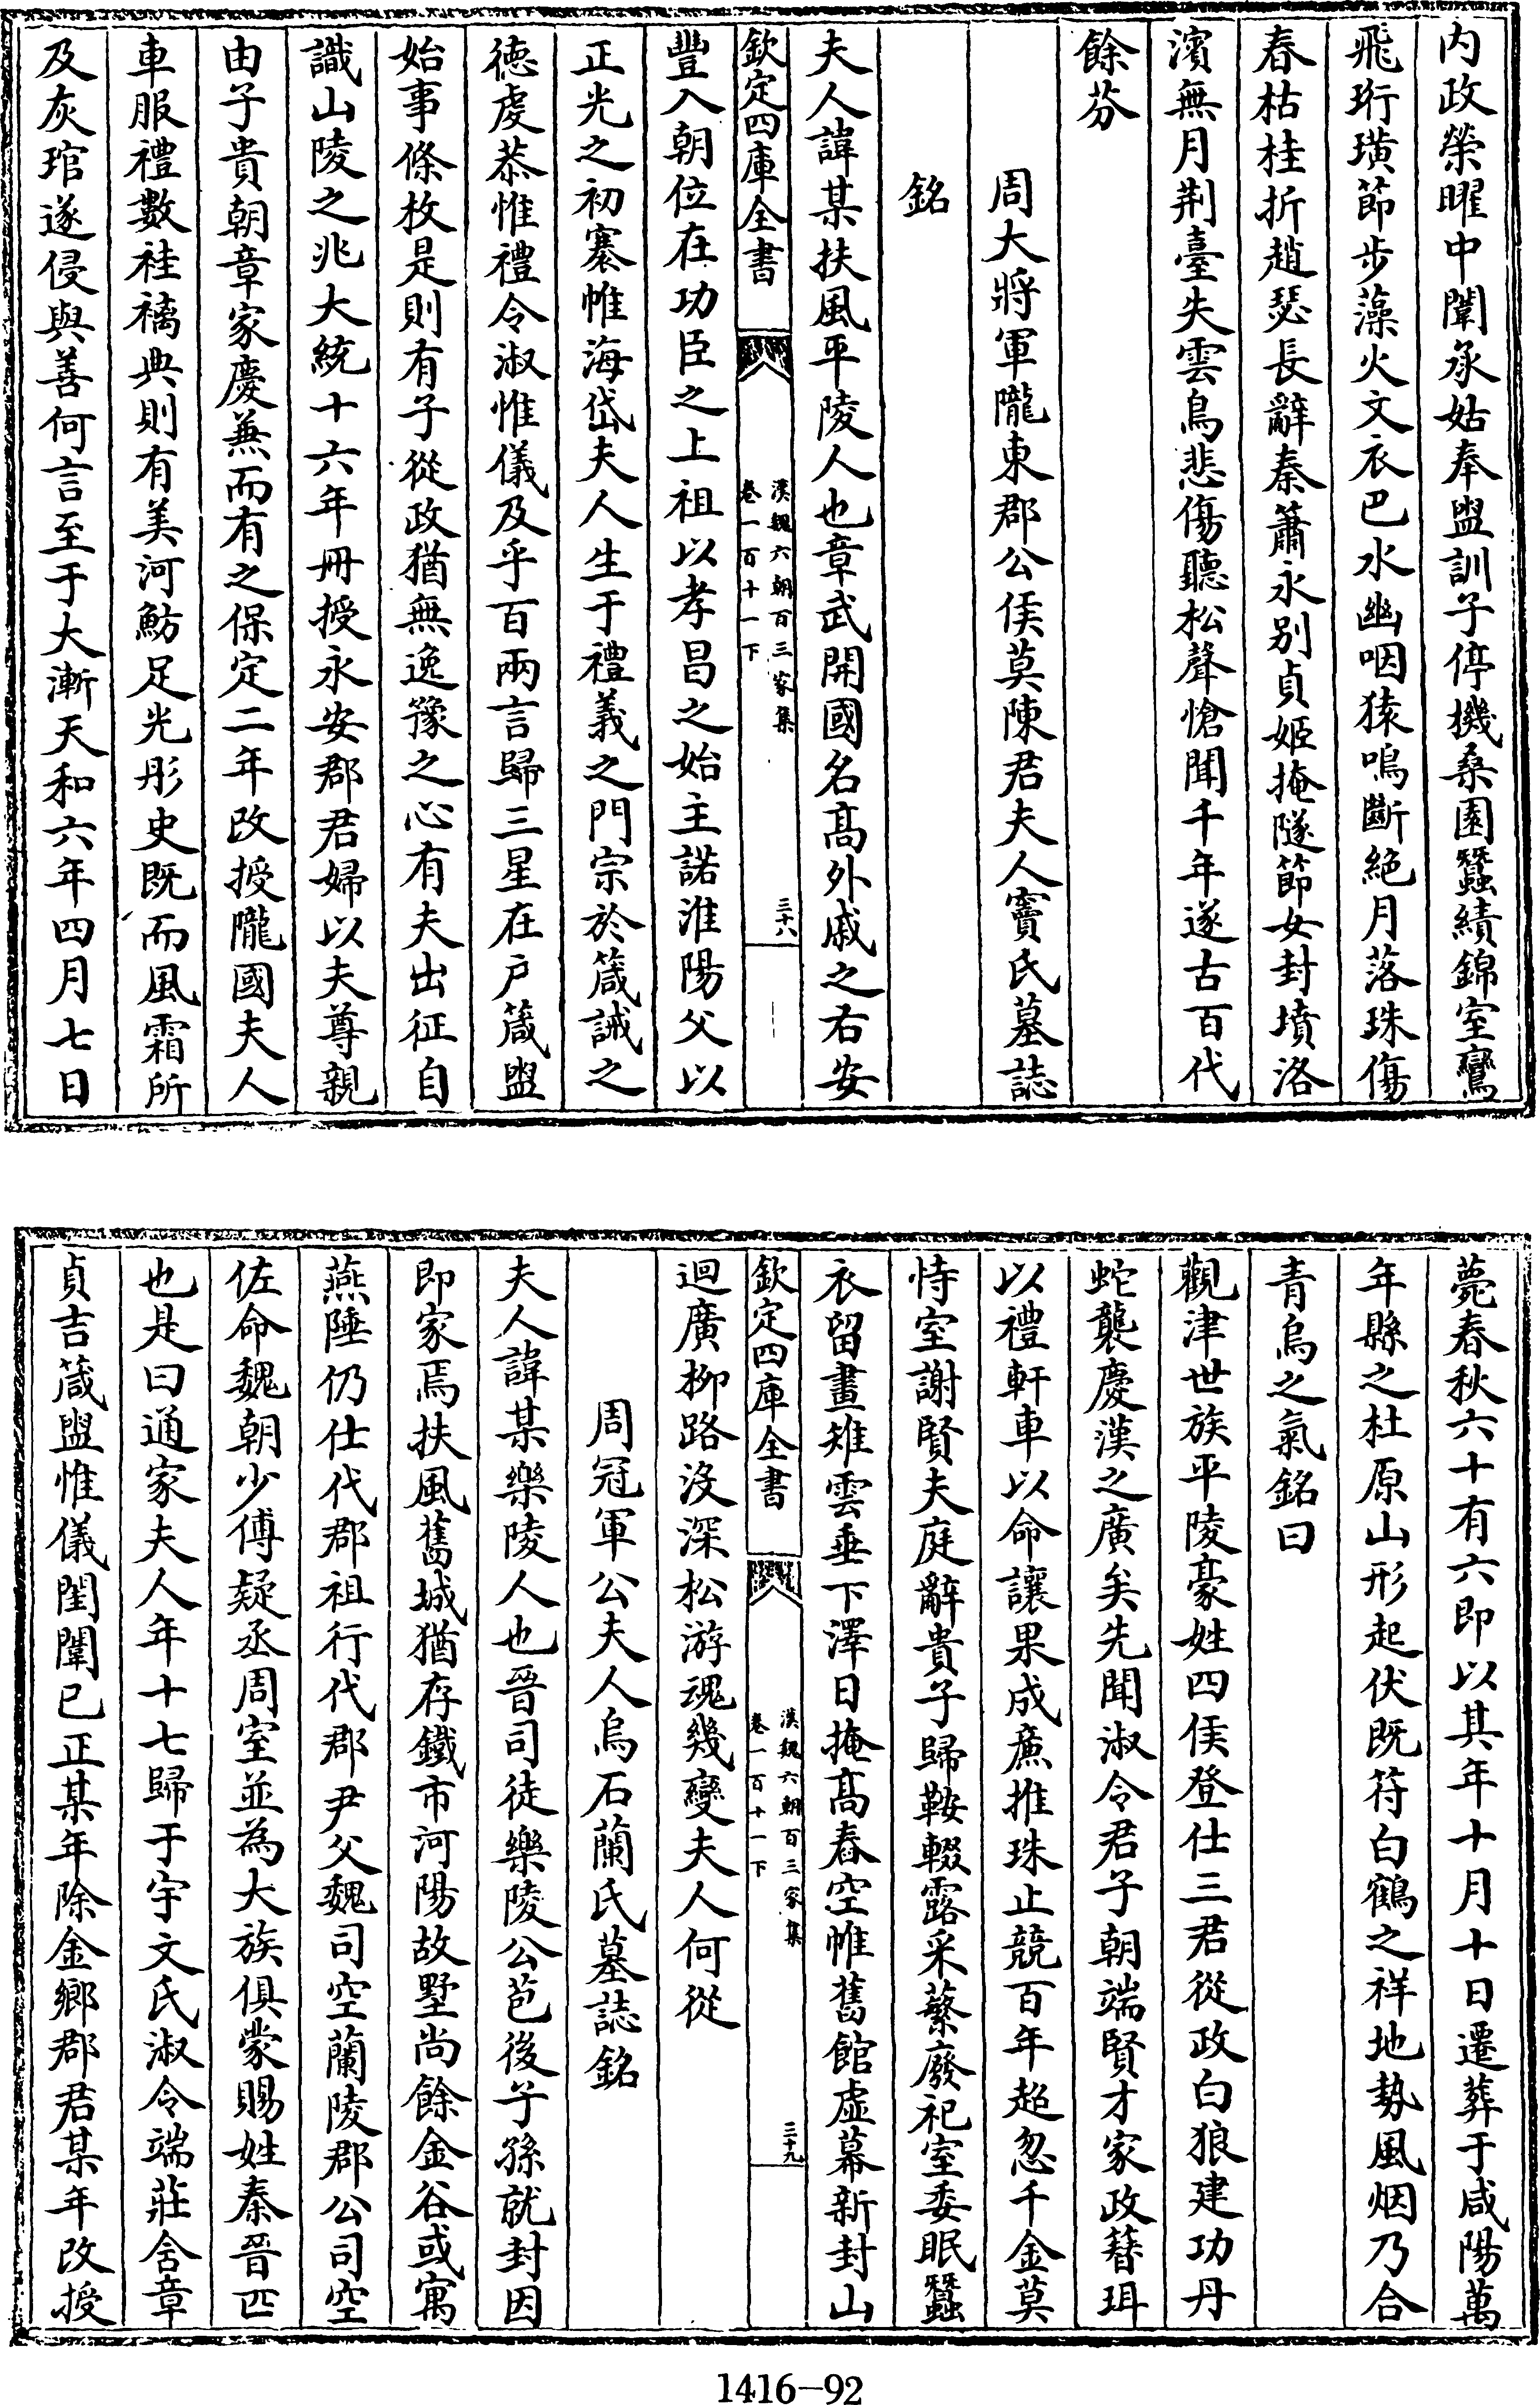 内政榮曜中闈承姑奉盥訓子停機桑園蠶績錦室鸞
飛珩璜節步藻火文衣巴水幽咽猿鳴斷絶月落珠傷
春枯桂折趙瑟長辭秦簫永别貞姬掩隧節女封墳洛
濱無月荆臺失雲鳥悲傷聽松聲愴聞千年遂古百代
餘芬
周大將軍隴東郡公侯莫陳君夫人竇氏墓誌
銘
夫人諱某扶風平陵人也章武開國名髙外戚之右安
欽定四庫全書
漢魏六朝百三家集
卷一百十一下
三十八
豐入朝位在功臣之上祖以孝昌之始主諾淮陽父以
正光之初褰帷海岱夫人生于禮義之門宗於箴誡之
徳虔恭惟禮令淑惟儀及乎百兩言歸三星在户箴盥
始事條枚是則有子從政猶無逸豫之心有夫出征自
識山陵之兆大統十六年冊授永安郡君婦以夫尊親
由子貴朝章家慶兼而有之保定二年改授隴國夫人
車服禮數袿襹典則有美河魴足光彤史既而風霜所
及灰琯遂侵與善何言至于大漸天和六年四月七日
薨春秋六十有六即以其年十月十日遷葬于咸陽萬
年縣之杜原山形起伏既符白鶴之祥地勢風烟乃合
青烏之氣銘曰
觀津世族平陵豪姓四侯登仕三君從政白狼建功丹
蛇襲慶漢之廣矣先聞淑令君子朝端賢才家政簪珥
以禮軒車以命讓果成亷推珠止競百年超忽千金莫
恃室謝賢夫庭辭貴子歸鞍輟露采蘩廢祀室委眠蠶
衣留畫雉雲垂下澤日掩髙舂空帷舊館虚幕新封山
欽定四庫全書
漢魏六朝百三家集
卷一百十一下
三十九
迴廣柳路沒深松游魂幾變夫人何從
周冠軍公夫人烏石蘭氏墓誌銘
夫人諱某樂陵人也晉司徒樂陵公苞後子孫就封因
即家焉扶風舊城猶存鐵市河陽故墅尚餘金谷或寓
燕陲仍仕代郡祖行代郡尹父魏司空蘭陵郡公司空
佐命魏朝少傅疑丞周室並為大族俱蒙賜姓秦晉匹
也是曰通家夫人年十七歸于宇文氏淑令端莊含章
貞吉箴盥惟儀閨闈已正某年除金鄉郡君某年改授
1416-92